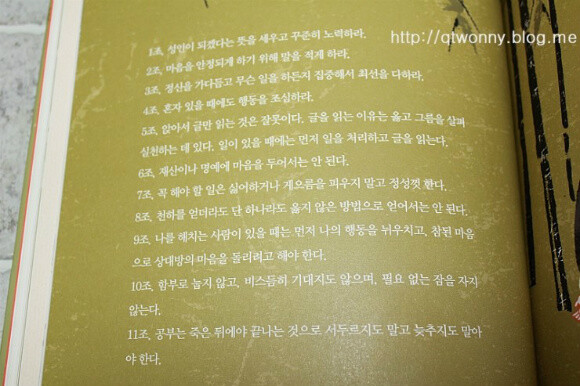 http://qtwonny.blog.me
1조, 성인이 되겠다는 뜻을 세우고 꾸준히 노력하라.
2조, 마음을 안정되게 하기 위해 말을 적게 하라.
3조, 정신을 가다듬고 무슨 일을 하든지 집중해서 최선을 다하라.
4조, 혼자 있을 때에도 행동을 조심하라.
5조, 앉아서 글만 읽는 것은 잘못이다. 글을 읽는 이유는 옳고 그름을 살펴
실천하는 데 있다. 일이 있을 때에는 먼저 일을 처리하고 글을 읽는다.
6조, 재산이나 명예에 마음을 두어서는 안 된다.
7조, 꼭 해야 할 일은 싫어하거나 게으름을 피우지 말고 정성껏 한다.
8조, 천하를 얻더라도 단 하나라도 옳지 않은 방법으로 얻어서는 안 된다.
9조, 나를 해치는 사람이 있을 때는 먼저 나의 행동을 뉘우치고, 참된 마음
으로 상대방의 마음을 돌리려고 해야 한다.
10조, 함부로 눕지 않고, 비스듬히 기대지도 않으며, 필요 없는 잠을 자지
않는다.
11조, 공부는 죽은 뒤에야 끝나는 것으로 서두르지도 말고 늦추지도 말아
야 한다.